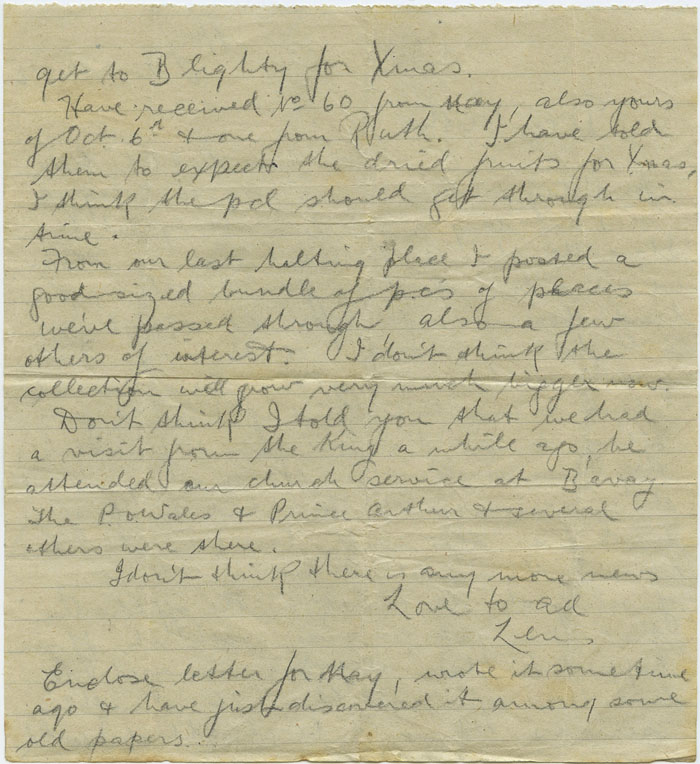 get to Blighty for Xmas.
Have received No 60 from May, also yours
of Oct. 6th & one from Ruth. I have told
them to expect the dried fruits for Xmas,
I think the pcl should get through in
time.
From our last halting place I posted a
good sized bundle of p.cs of places
we've passed through also a few
others of interest. I don't think the
collection will grow very much bigger now.
Don't think I told you that we had
a visit from the King a while ago, he
attended our church service at Bavay.
The P. o Wales & Prince Arthur & several
others were there.
I don't think there is any more news
Love to all
Len
Enclose letter for May, wrote it sometime
ago & have just discovered it among some
old papers.